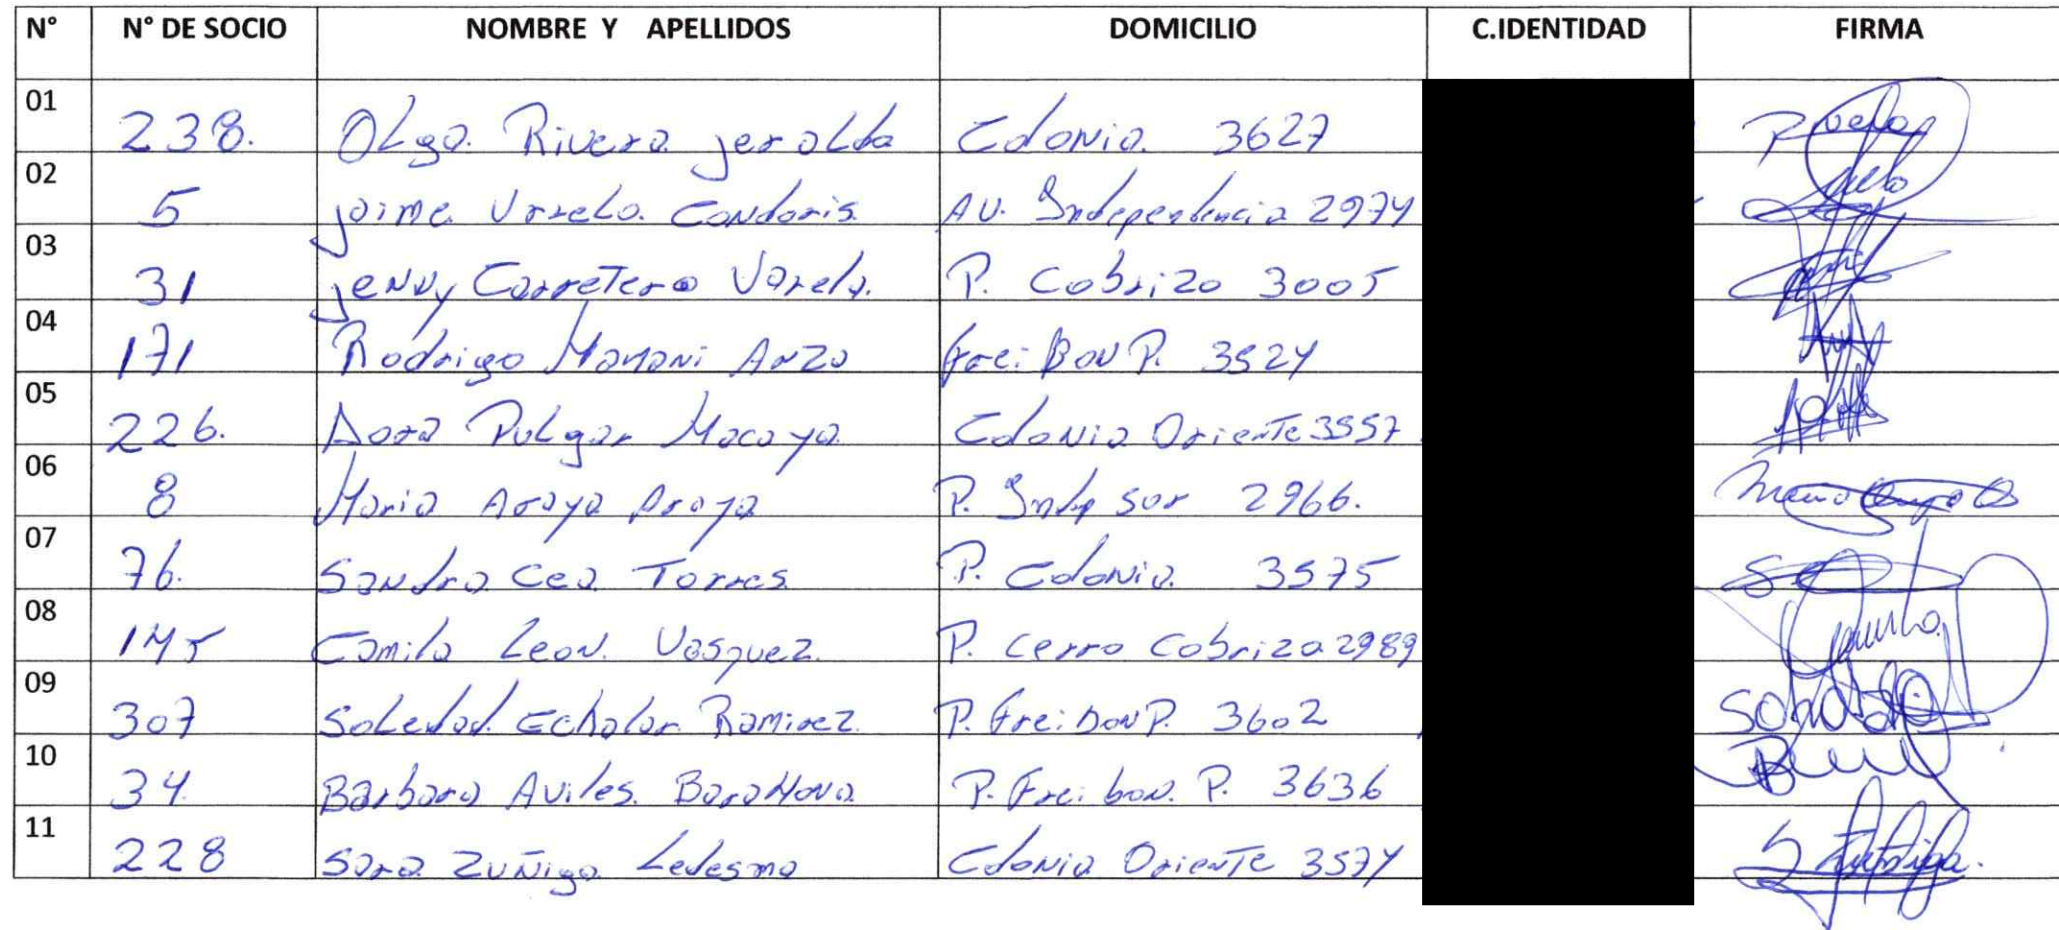 N° N° DE SOCIO NOMBRE Y APELLIDOS DOMICILIO C.IDENTIDAD FIRMA
01 238. Olga. Rivera jeralda Colonia. 3627
02 5 jaime Varela. Condoris. AV. Independencia 2974
03 31 jenny Carretero Varela. P. Cobrizo 3005
04 171 Rodrigo Mamani Anza Frei Bon P. 3524
05 226. Dora Pulgar Macaya Colonia Oriente 3557
06 8 Maria Araya Araya P. Indep sur 2966.
07 76. Sandra Cea Torres P. Colonia. 3575
08 145 Camila Leon. Vasquez. P. Cerro Cobrizo 2989
09 307 Soledad. Echalar Ramirez P. Frei Bon P. 3602 Soledad
10 34 Barbara Aviles. Barahona P. Frei bon. P. 3636
11 228 Sara Zuñiga Ledesma Colonia Oriente 3574